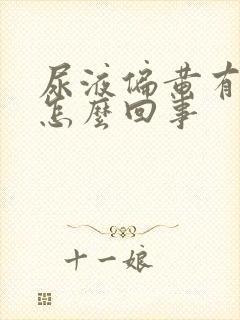 尿液偏黄有
怎麼回事
十一娘